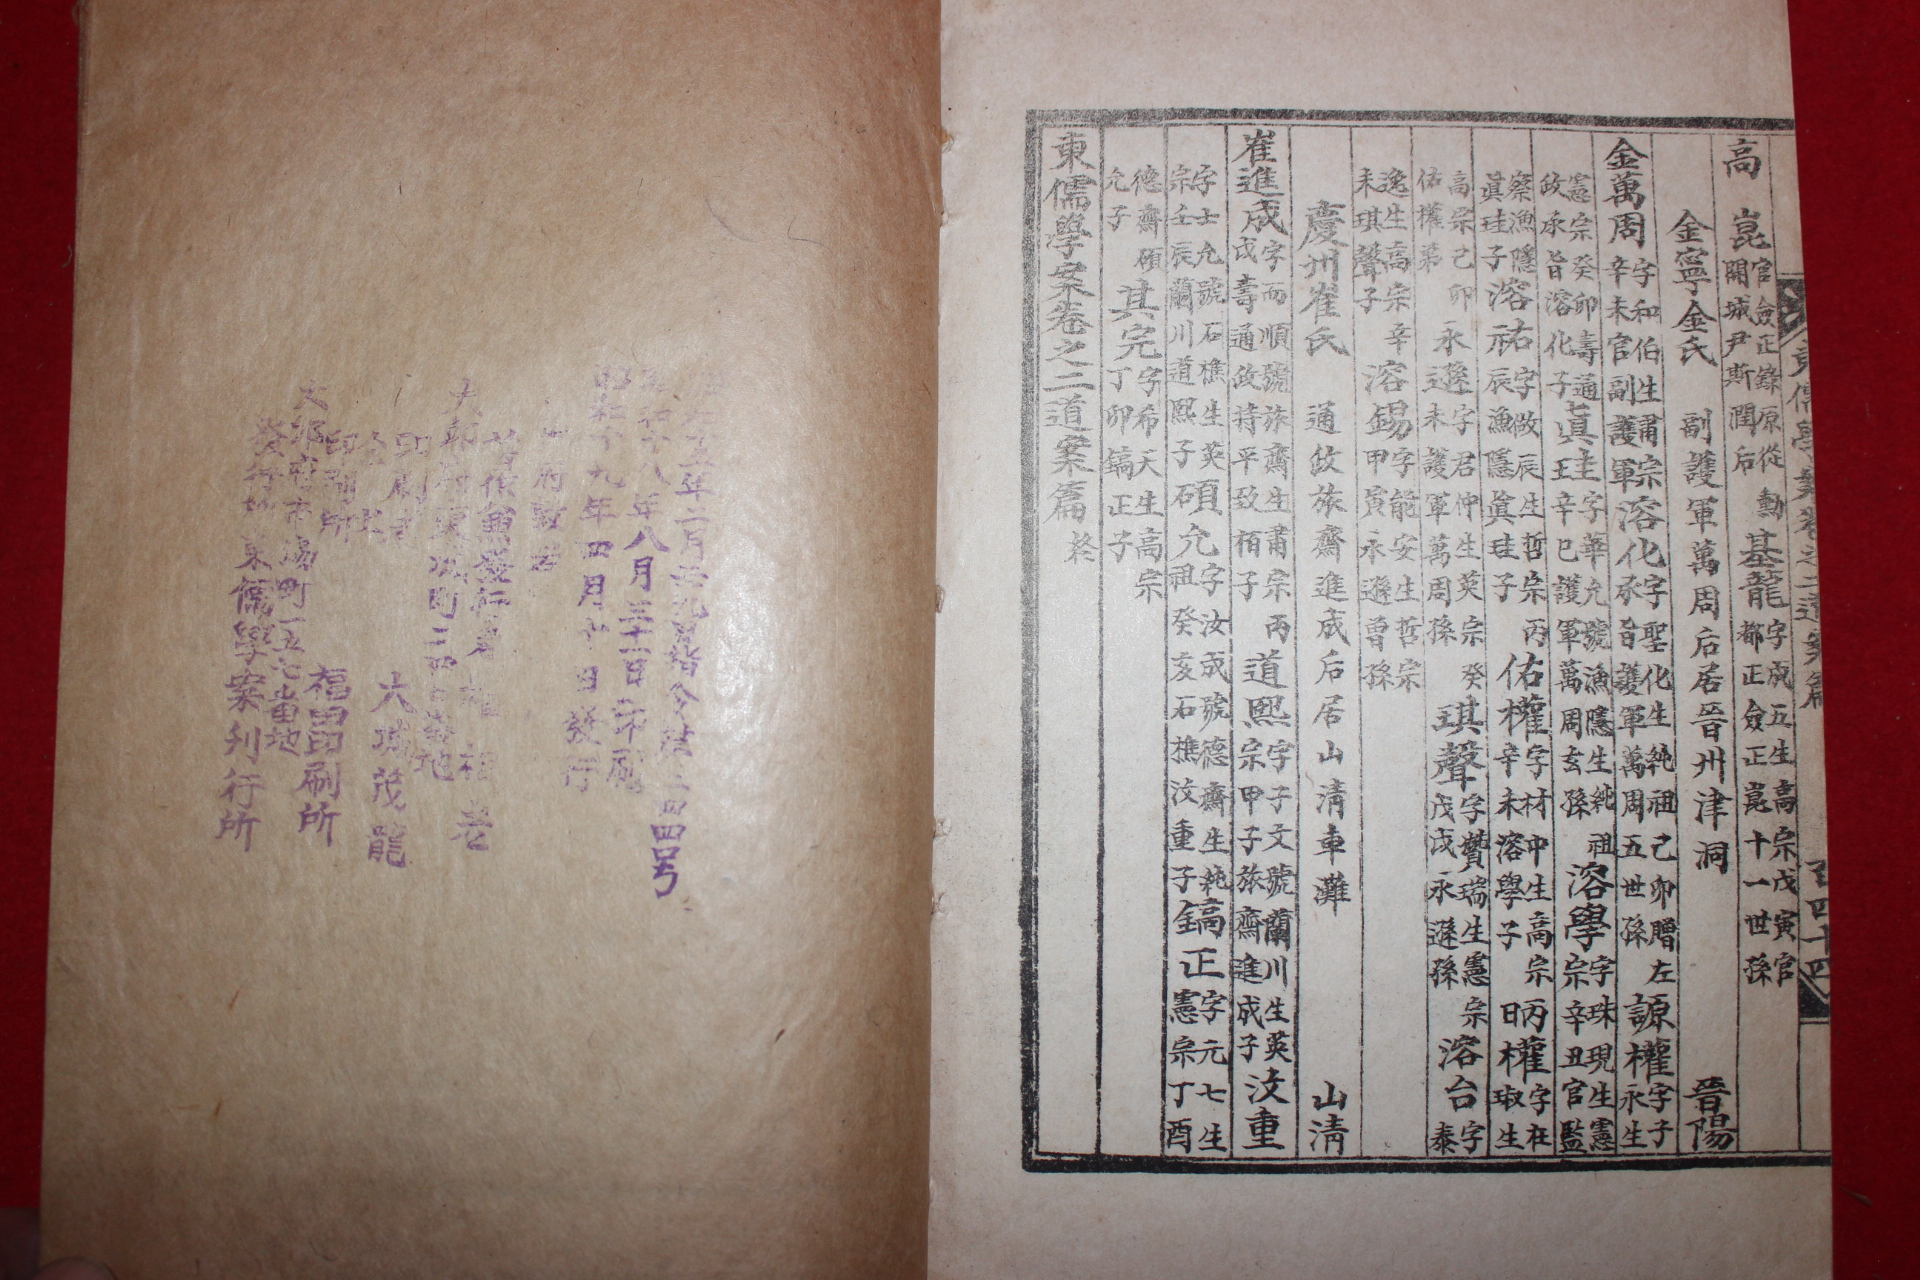 高崑官僉正錄原從勳
開城尹斯潤后
基龍字成五生高宗戊寅官
都正僉正崑十一世孫
金寧金氏 副護軍萬周后居晉州津洞 晉陽
金萬周字和伯生肅宗
辛未官副護軍
溶化字聖化生純祖己卯贈左
承旨護軍萬周五世孫
源權字子
永生
憲宗癸卯壽通
政承旨溶化子
真圭字華允號漁隱生純祖
王辛巳護軍萬周玄孫
溶學字珠現生憲
宗辛丑官監
察漁隱
眞珪子
溶祐字敬辰生哲宗丙
辰漁隱眞珪子
佑權字材中生高宗丙
辛未溶學子
日權字在
琡生
高宗己卯
佑權弟
永遜字君仲生英宗癸
未護軍萬周孫
琪聲字贊瑞生憲宗
戊戌永遜孫
溶台字
泰
逸生高宗辛
未琪聲子
溶錫字能安生哲宗
甲寅永遜曾孫
慶州崔氏 通政旅齋進成后居山清車灘 山清
崔進成字而順號旅齋生肅宗丙
戌壽通政持平致栢子
道熙字子文號蘭川生英
宗甲子旅齋進成子
汶重
字士允號石樵生英
宗壬辰蘭川道熙子
碩允字汝成號德齋生純
祖癸亥石樵汶重子
鎬正字元七生
憲宗丁酉
德齋碩
允子
其完字希天生高宗
丁卯鎬正子
東儒學案卷之二道案篇終
年八月三十一日印刷
昭和十九年四月廿日發行
大邱府東城町
印刷者 大城茂龍
大邱府市場町一五七番地
印刷所 福田印刷所
發行所 東儒學案刊行所